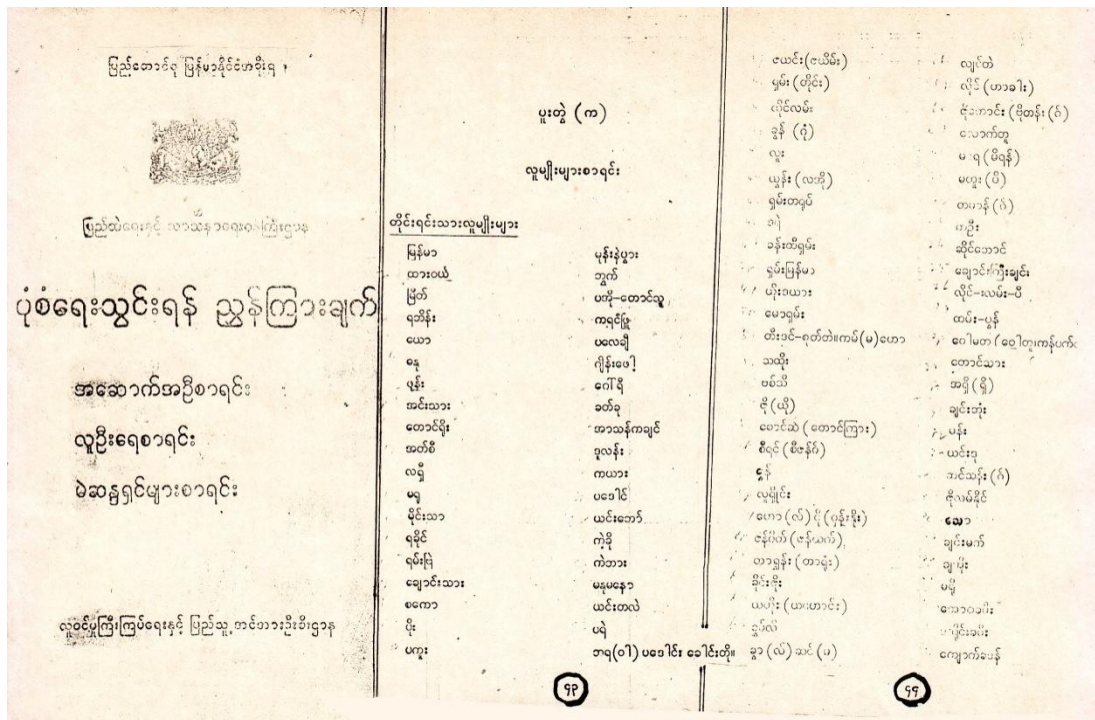 ပြည်ထောင်စု မြန်မာနိုင်ငံအစိုးရ
ပြည်ထဲရေးနှင့် သာသနာရေးဝန်ကြီးဌာန
ပုံစံရေးသွင်းရန် ညွှန်ကြားချက်
အဆောက်အဦစာရင်း
လူဦးရေစာရင်း
မဲဆန္ဒရှင်များစာရင်း
လူဝင်မှုကြီးကြပ်ရေးနှင့် ပြည်သူ့အင်အားဦးစီးဌာန
ပူးတွဲ (က)
လူမျိုးများစာရင်း
တိုင်းရင်းသားလူမျိုးများ
မြန်မာ
ထားဝယ်
မြိတ်
ရဘိန်း
ယော
ဓနု
ဖွန်း
အင်းသား
တောင်ရိုး
အတ်စီ
လရှီ
မရု
မိုင်းသာ
ရခိုင်
ရမ်းဗြဲ
ချောင်းသား
စကော
ပိုး
ပကူး
မုန်းနဲပွား
ဘွက်
ပအို–တောင်သူ
ကရင်ဖြူ
ပလေချီ
ဂျိန်းဖေါ့
ဂေါ်ရီ
ခတ်ခု
အာသန်ကချင်
ဒူလန်း
ကယား
ပဒေါင်
ယင်းဘော်
ကဲ့ခို
ကဲဘား
မနုမနော
ယင်းတလဲ
ပရဲ
ဘရ(ဝါ) ပဒေါင်း ခေါင်းတို။
၄၃
ဇယင်း(ဇယိမ်း)
ရှမ်း (တိုင်း)
ခွန် (ဂုံ)
လူး
ယွန်း (လအို)
ရှမ်းတရုပ်
ခန်းတီရှမ်း
ရှမ်းမြန်မာ
ယိုးဒယား
မောရှမ်း
သထိုး
ဗစ်သီ
ဇို (ယို)
စောင်ဆဲ (တောင်ကြား)
စီရင် (စီဇန်ဂ်)
ဇွန်
လူရှိုင်း
ဇန်ပိတ် (ဇန်ယက်)
တာရွန်း (တာရုံး)
ခိုင်းဇိုး
ခွာ (လ်) ဆင် (မ)
လျင်တဲ
လိုင် (ဟာခါး)
သောက်တူ
မာရ (မီရန်)
မတူး (ပိ)
တမာန် (ဂ်)
ဆိုင်ဇောင်
ချောင်းကြီးချင်း
လိုင်–လမ်း–ပီ
ထမ်း–ပွန်
တောင်သား
အရှိ (ရှို)
ချင်းဘုံး
မန်း
ယင်းဒု
ကိုလမ်နိုင်
သော
ချင်းမက်
မရို
ကျောက်ခပန်
၄၄